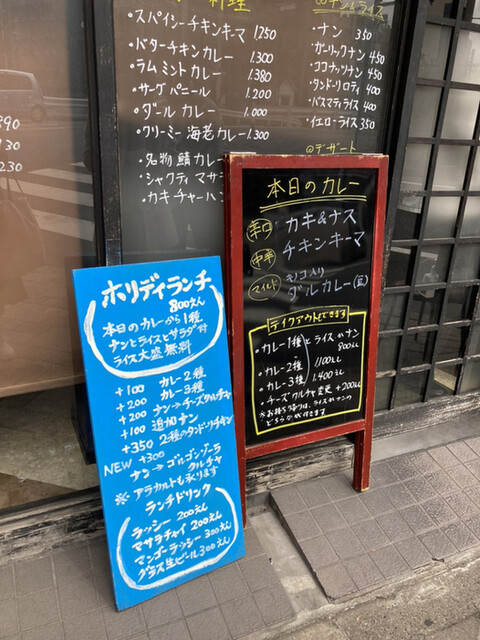 料理
・スパイシーチキンキーマ 1250
・バターチキンカレー 1.300
・ラムミントカレー 1.380
・サーグパニール 1.200
・ダールカレー 1.000
・クリーミー海老カレー 1.300
・名物 鯖カレー
・シャクティマサラ
・カキチャーハン
ナン&ライス
・ナン 350
・ガーリックナン 450
・ココナッツナン 450
・タンドーリロティ 400
・バスマティライス 400
・イエローライス 350
@デザート
890
30
230
本日のカレー
辛口 カキ&ナス
中辛 チキンキーマ
マイルド キノコ入り
ダルカレー(豆)
テイクアウトもできます
・カレー1種とライスorナン
800えん
・カレー2種 〃 1100えん
・カレー3種 1.400えん
・チーズクルチャ変更 +200えん
※お持ち帰りは、ライスorナンの
どちらかが付きます
ホリデイランチ
800えん
本日のカレーから1種
ナンとライスとサラダ付
ライス大盛無料
+100 カレー2種
+200 カレー3種
+200 ナン→チーズクルチャ
+100 追加ナン
+350 2種のタンドリチキン
NEW +300
ナン→ゴルゴンゾーラ
クルチャ
※アラカルトも承ります
ランチドリンク
ラッシー 200えん
マサラチャイ 200えん
マンゴーラッシー 300えん
グラス生ビール 300えん